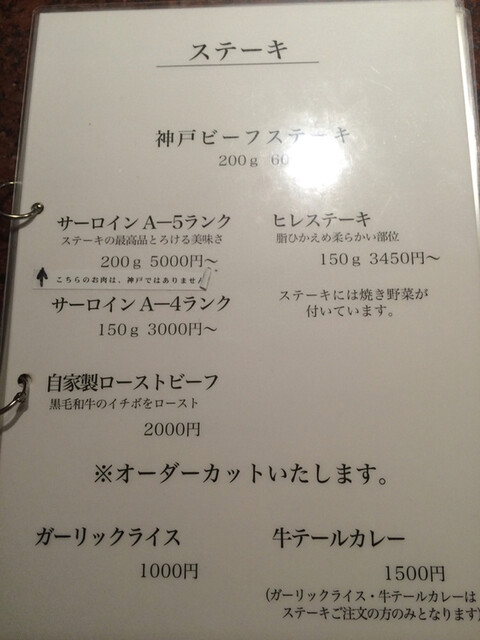 ステーキ
神戸ビーフステーキ
200g 60
サーロイン A―5ランク
ステーキの最高品とろける美味さ
200g 5000円～
こちらのお肉は、神戸ではありません
サーロイン A―4ランク
150g 3000円～
ヒレステーキ
脂ひかえめ柔らかい部位
150g 3450円～
ステーキには焼き野菜が
付いています。
自家製ローストビーフ
黒毛和牛のイチボをロースト
2000円
※オーダーカットいたします。
ガーリックライス
1000円
牛テールカレー
1500円
(ガーリックライス・牛テールカレーは
ステーキご注文の方のみとなります)